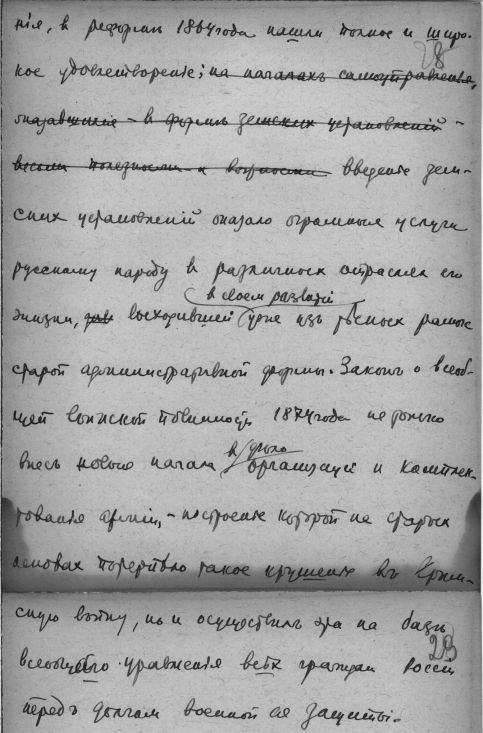 нія, въ реформѣ 1864 года нашли полное и широ-
28
кое удовлетвореніе; на началахъ самоуправленія,
оказавшихъ – въ формѣ земскихъ установленій –
весьма полезности и введеніе зем-
скихъ установленій оказало огромныя услуги
русскому народу въ различныхъ отрасляхъ его
въ своемъ развитіи
жизни, выходившей уже изъ тѣсныхъ рамокъ
старой административной формы. Законъ о всеоб-
щей воинской повинности 1874 года не только
въ дѣло
внесъ новыя начала организаціи и комплек-
тованія арміи, – построеніе которой на старыхъ
основахъ потерпѣло такое крушеніе въ Крым-
скую войну, но и осуществилъ на базѣ
23
всеобщаго уравненія всѣхъ гражданъ Россіи
передъ долгомъ военной ея защиты.